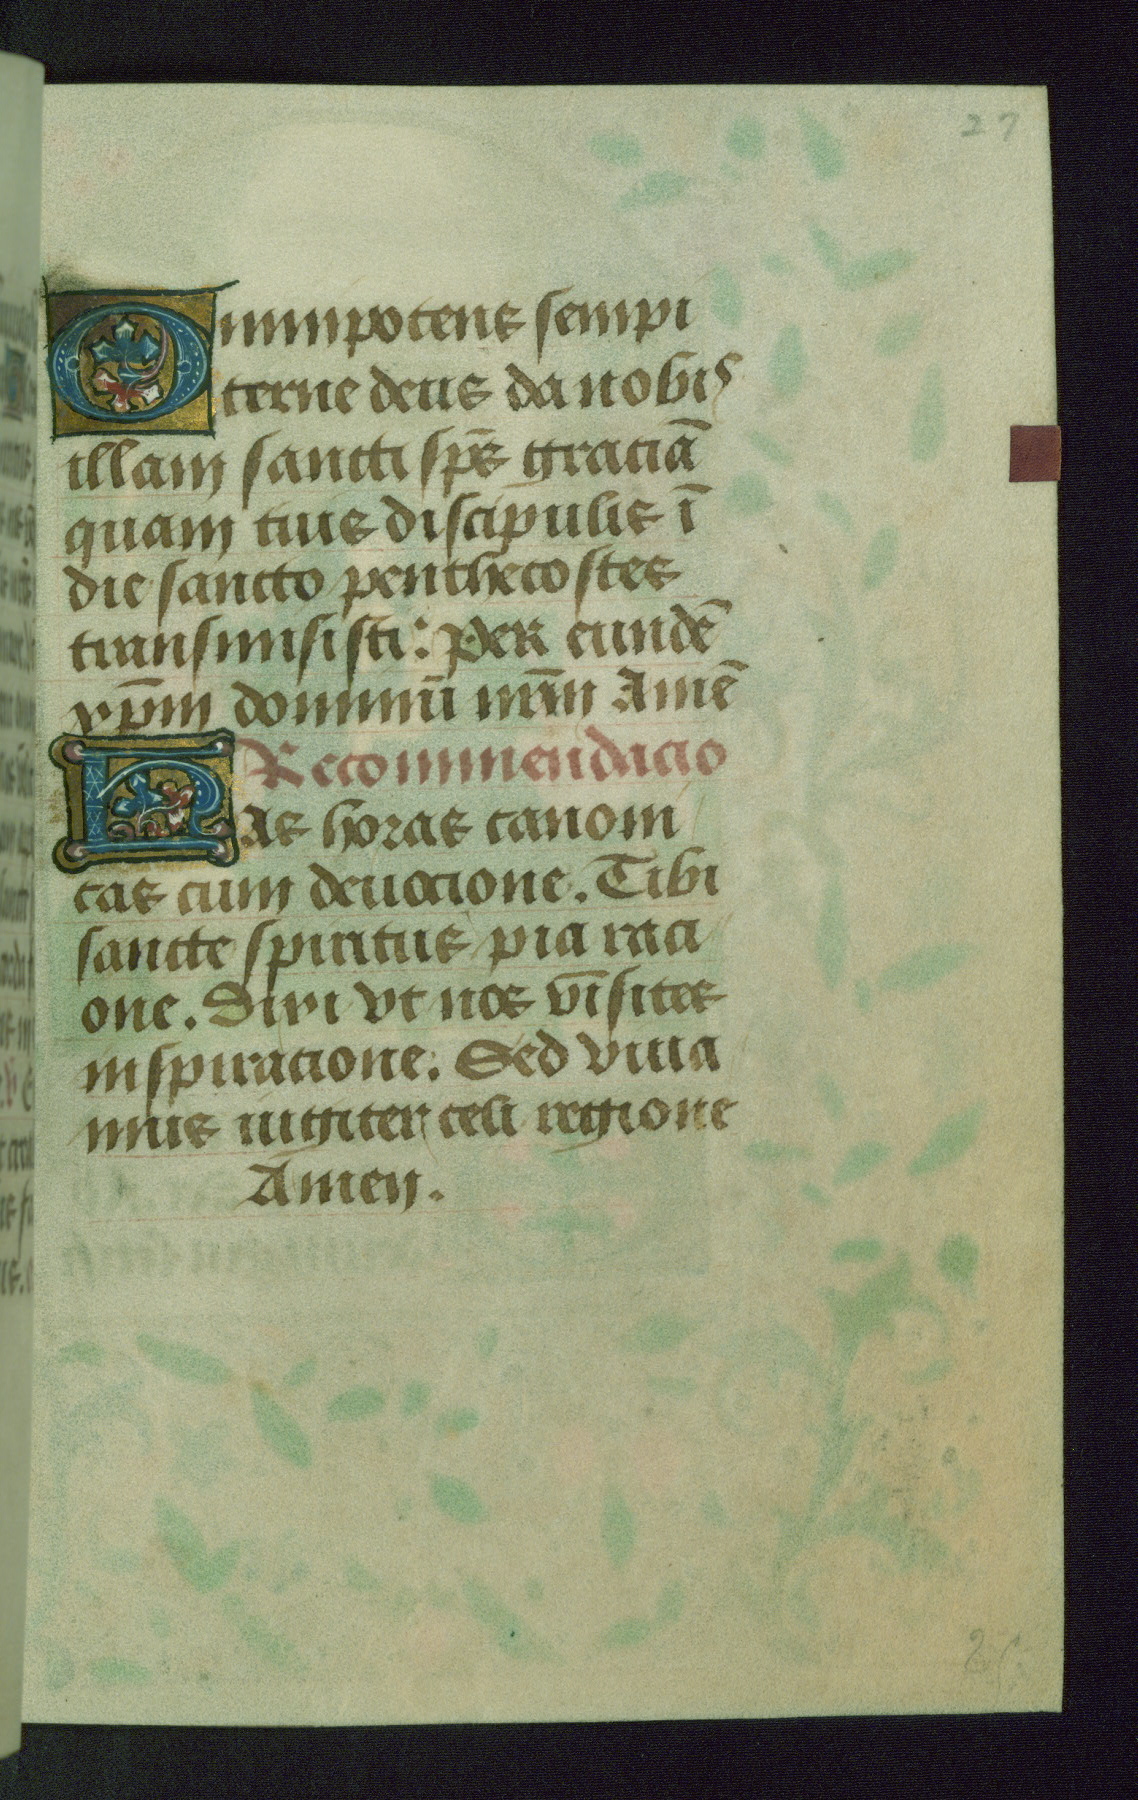 27
Omnipotens sempi
terne deus da nobis
illam sancti sps̄ graciā
quam tuis discipulis ī
die sancto penthecostes
transmisisti: Per eundē
xp̄m dominū nr̄m Amē
Recommendacio
Has horas canoni
cas cum deuocione. Tibi
sancte spiritus pia raci
one. Dixi vt nos vīsites
inspiracione. Sed viua
mus iugiter celi regione
Amen.